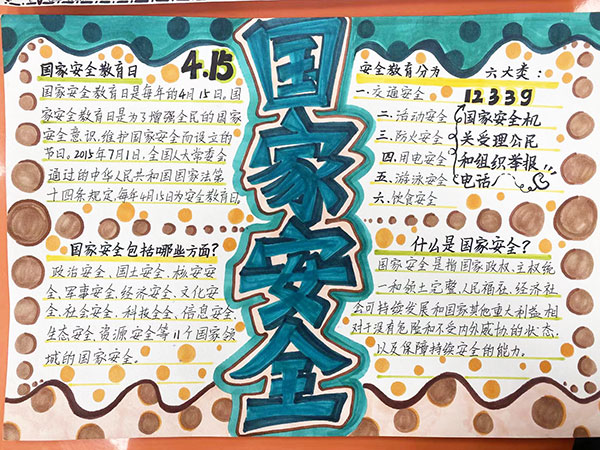 国家安全
国家安全教育日
4.15
国家安全教育日是每年的4月15日。国
家安全教育日是为了增强全民的国家
安全意识,维护国家安全而设立的
节日。2015年7月1日,全国人大常委会
通过的中华人民共和国国家法第
十四条规定,每年4月15日为安全教育日
国家安全包括哪些方面?
政治安全、国土安全、核安安
全、军事安全、经济安全、文化安
全、社会安全、科技安全、信息安全、
生态安全、资源安全等11个国家领
域的国家安全。
安全教育分为 六大类:
一.交通安全
二.活动安全
三.防火安全
四.用电安全
五.游泳安全
六.饮食安全
12339
国家安全机
关受理公民
和组织举报
电话
什么是国家安全?
国家安全是指国家政权、主权统
一和领土完整、人民福在、经济社
会可持续发展和国家其他重大利益相
对于没有危险和不受内外威协的状态,
以及保障持续安全的能力。